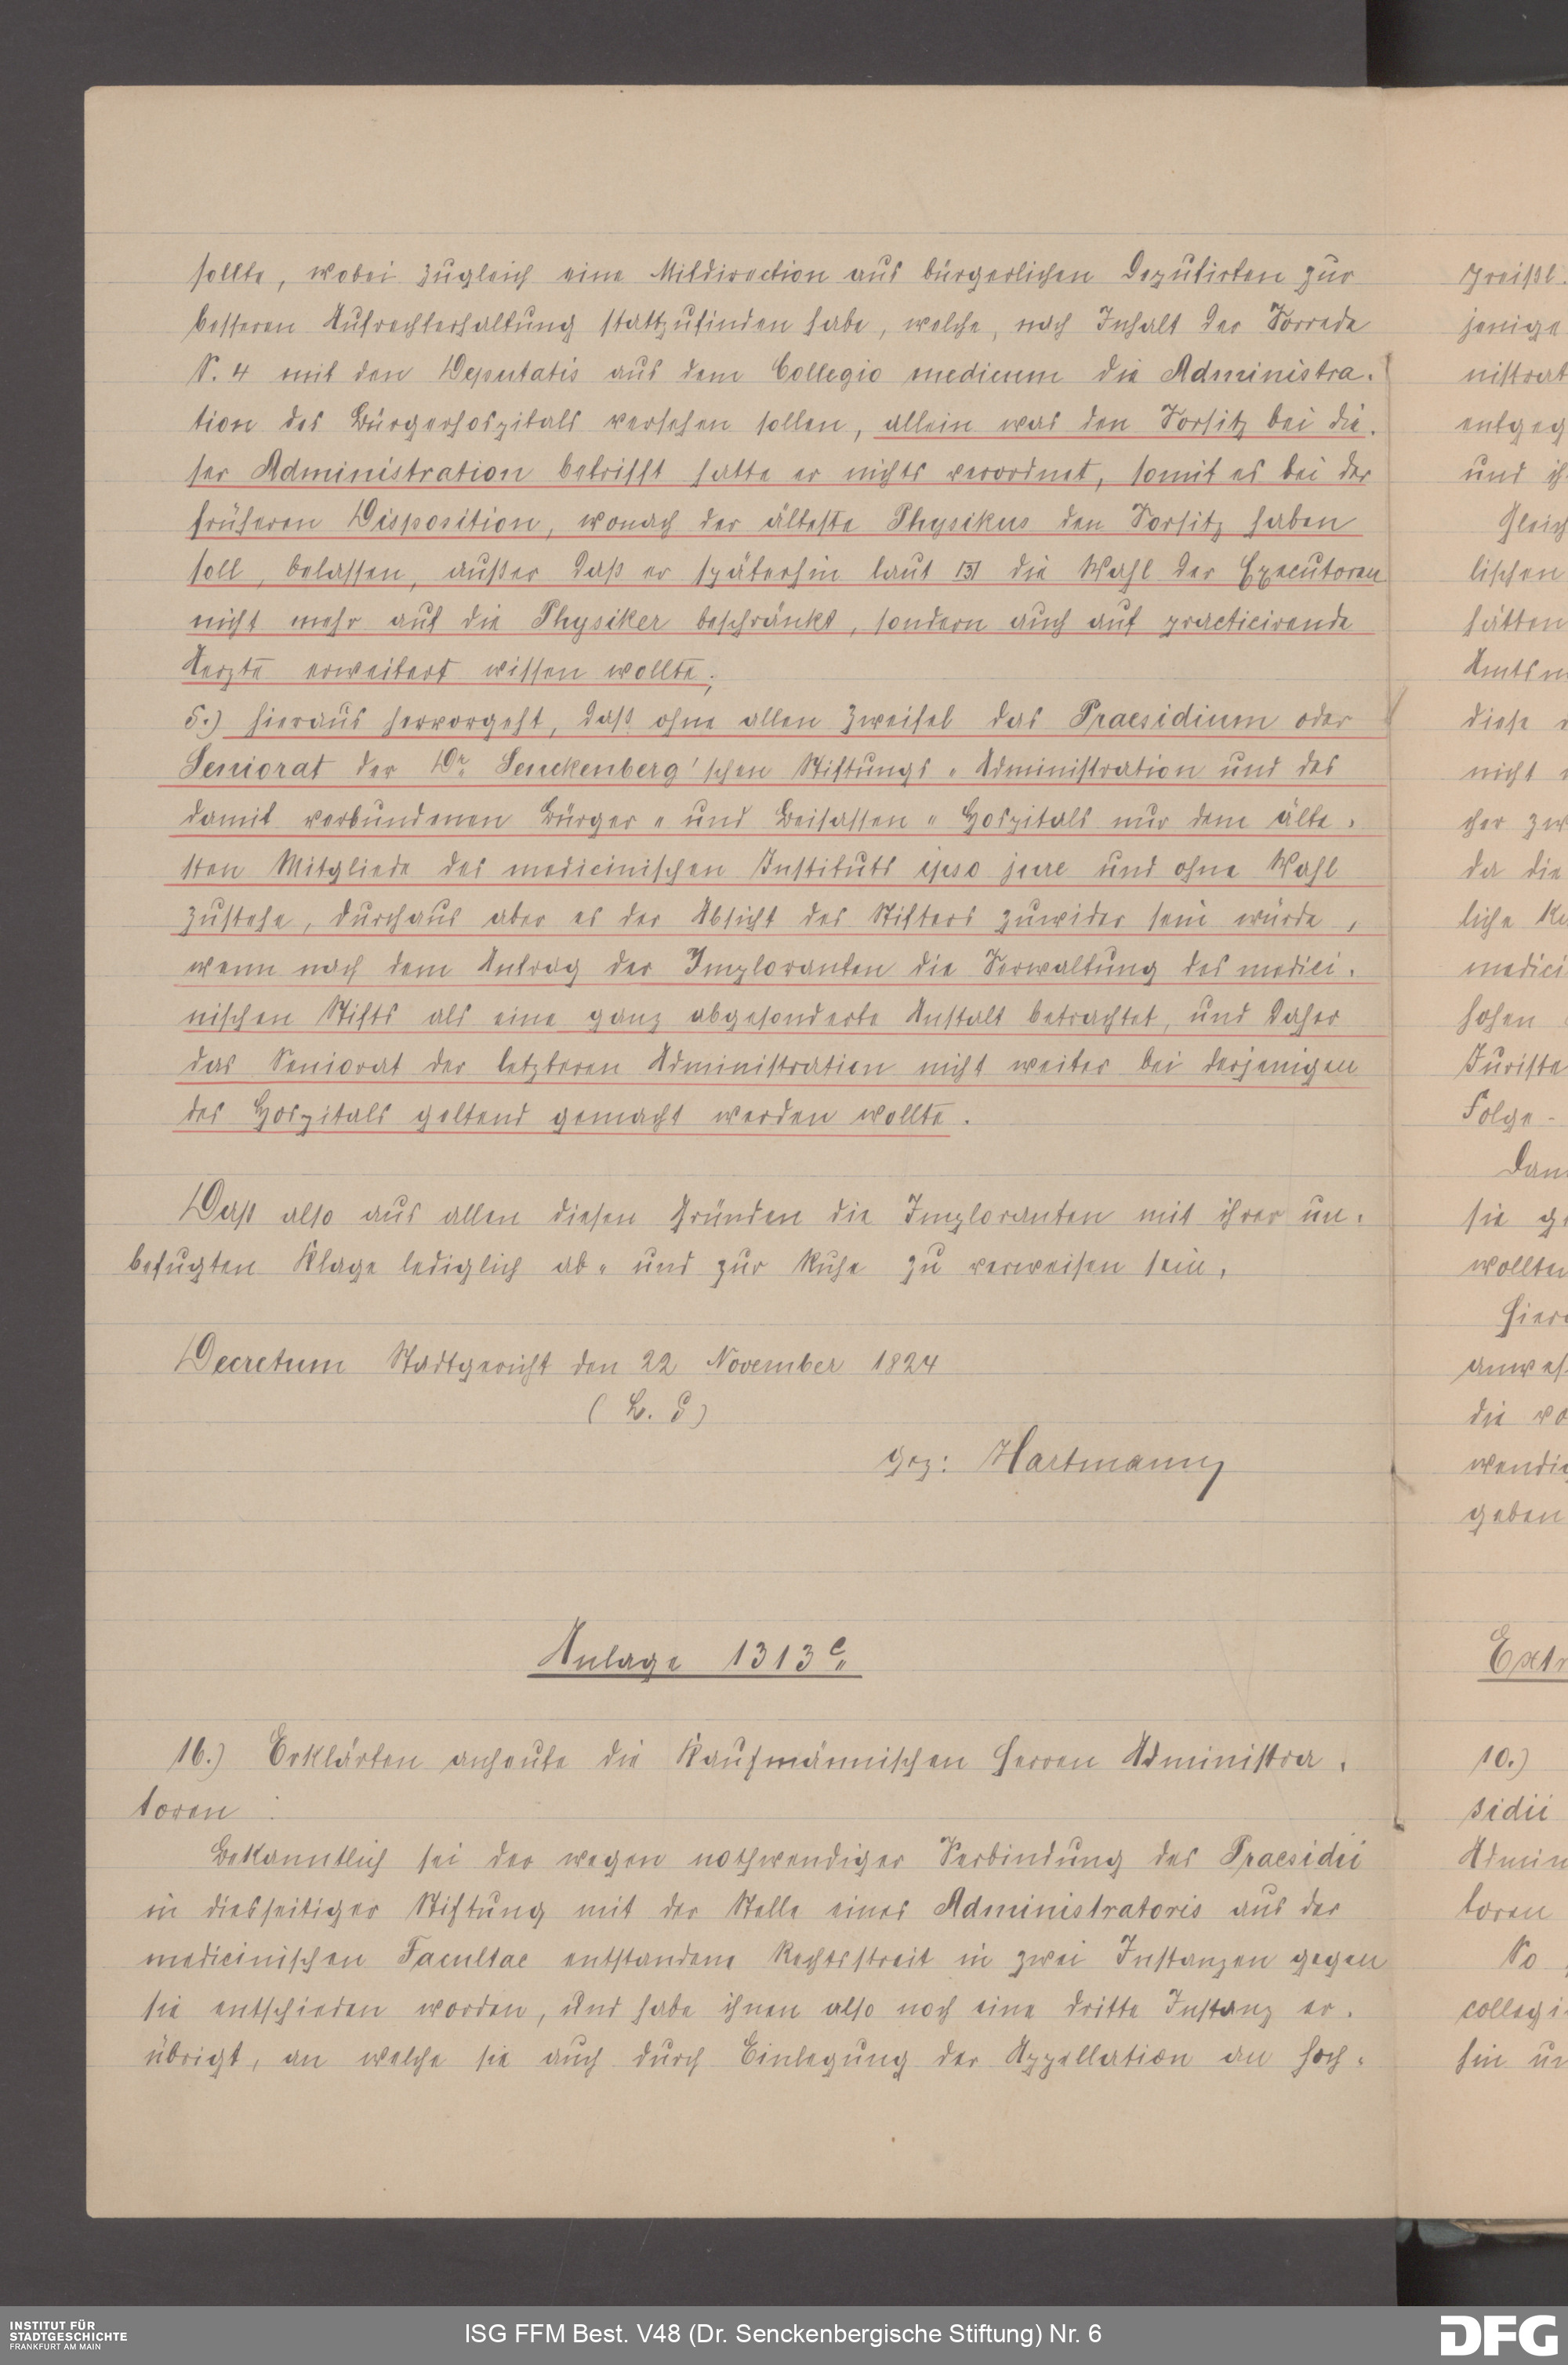 sollte, wobei zugleich eine Mitdirection aus bürgerlichen Deputirten zur
besseren Aufrechterhaltung stattzufinden habe, welche, nach Inhalt der Vorrede
S. 4 mit den Deputatis aus dem Collegio medicum die Administra-
tion des Bürgerhospitals versehen sollen, allein was den Vorsitz bei die-
ser Administration betrifft hatte er nichts verordnet, somit es bei der
früheren Disposition, wonach der älteste Physikus den Vorsitz haben
soll, belassen, außer daß er späterhin laut [3] die Wahl der Executoren
nicht mehr auf die Physiker beschränkt, sondern auch auf practicirende
Aerzte erweitert wissen wollte;
5.) hieraus hervorgeht, daß ohne allen Zweifel das Praesidium oder
Seniorat der Dr. Senckenberg'schen Stiftungs-Administration und des
damit verbundenen Bürger- und Beisassen-Hospitals nur dem älte-
sten Mitgliede des medicinischen Instituts ipso jure und ohne Wahl
zustehe, durchaus aber es der Absicht des Stifters zuwider sein würde,
wenn nach dem Antrag der Imploranten die Verwaltung des medici-
nischen Stifts als eine ganz abgesonderte Anstalt betrachtet, und daher
das Seniorat der letzteren Administration nicht weiter bei derjenigen
des Hospitals geltend gemacht werden wollte.
Daß also aus allen diesen Gründen die Imploranten mit ihrer un-
befugten Klage lediglich ab- und zur Ruhe zu verweisen sein,
Decretum Stadtgericht den 22 November 1824
(L. S)
gez: Hartmann
Anlage 1313 c
16.) Erklärten anheute die kaufmännischen Herren Administra-
toren :
Bekanntlich sei der wegen nothwendiger Verbindung des Praesidii
in diesseitiger Stiftung mit der Stelle eines Administratoris aus der
medicinischen Facultae entstandene Rechtsstreit in zwei Instanzen gegen
sie entschieden worden, und habe ihnen also noch eine dritte Instanz er-
übrigt, an welche sie auch durch Einlegung der Appellation an hoch-
jenige
nistrat
entgeg
und ih
Gleich
lischen
hätten
Amts
diese
nicht
cher zw
da die
liche
medici
hohen
Juriste
Folge-
Dan
sie
wollten
Hier
anwes
die vo
wendig
geben
Extr
10.)
sidii
Admin
toren
So
collegi
hin un
INSTITUT FÜR
STADTGESCHICHTE
FRANKFURT AM MAIN
ISG FFM Best. V48 (Dr. Senckenbergische Stiftung) Nr. 6
DFG